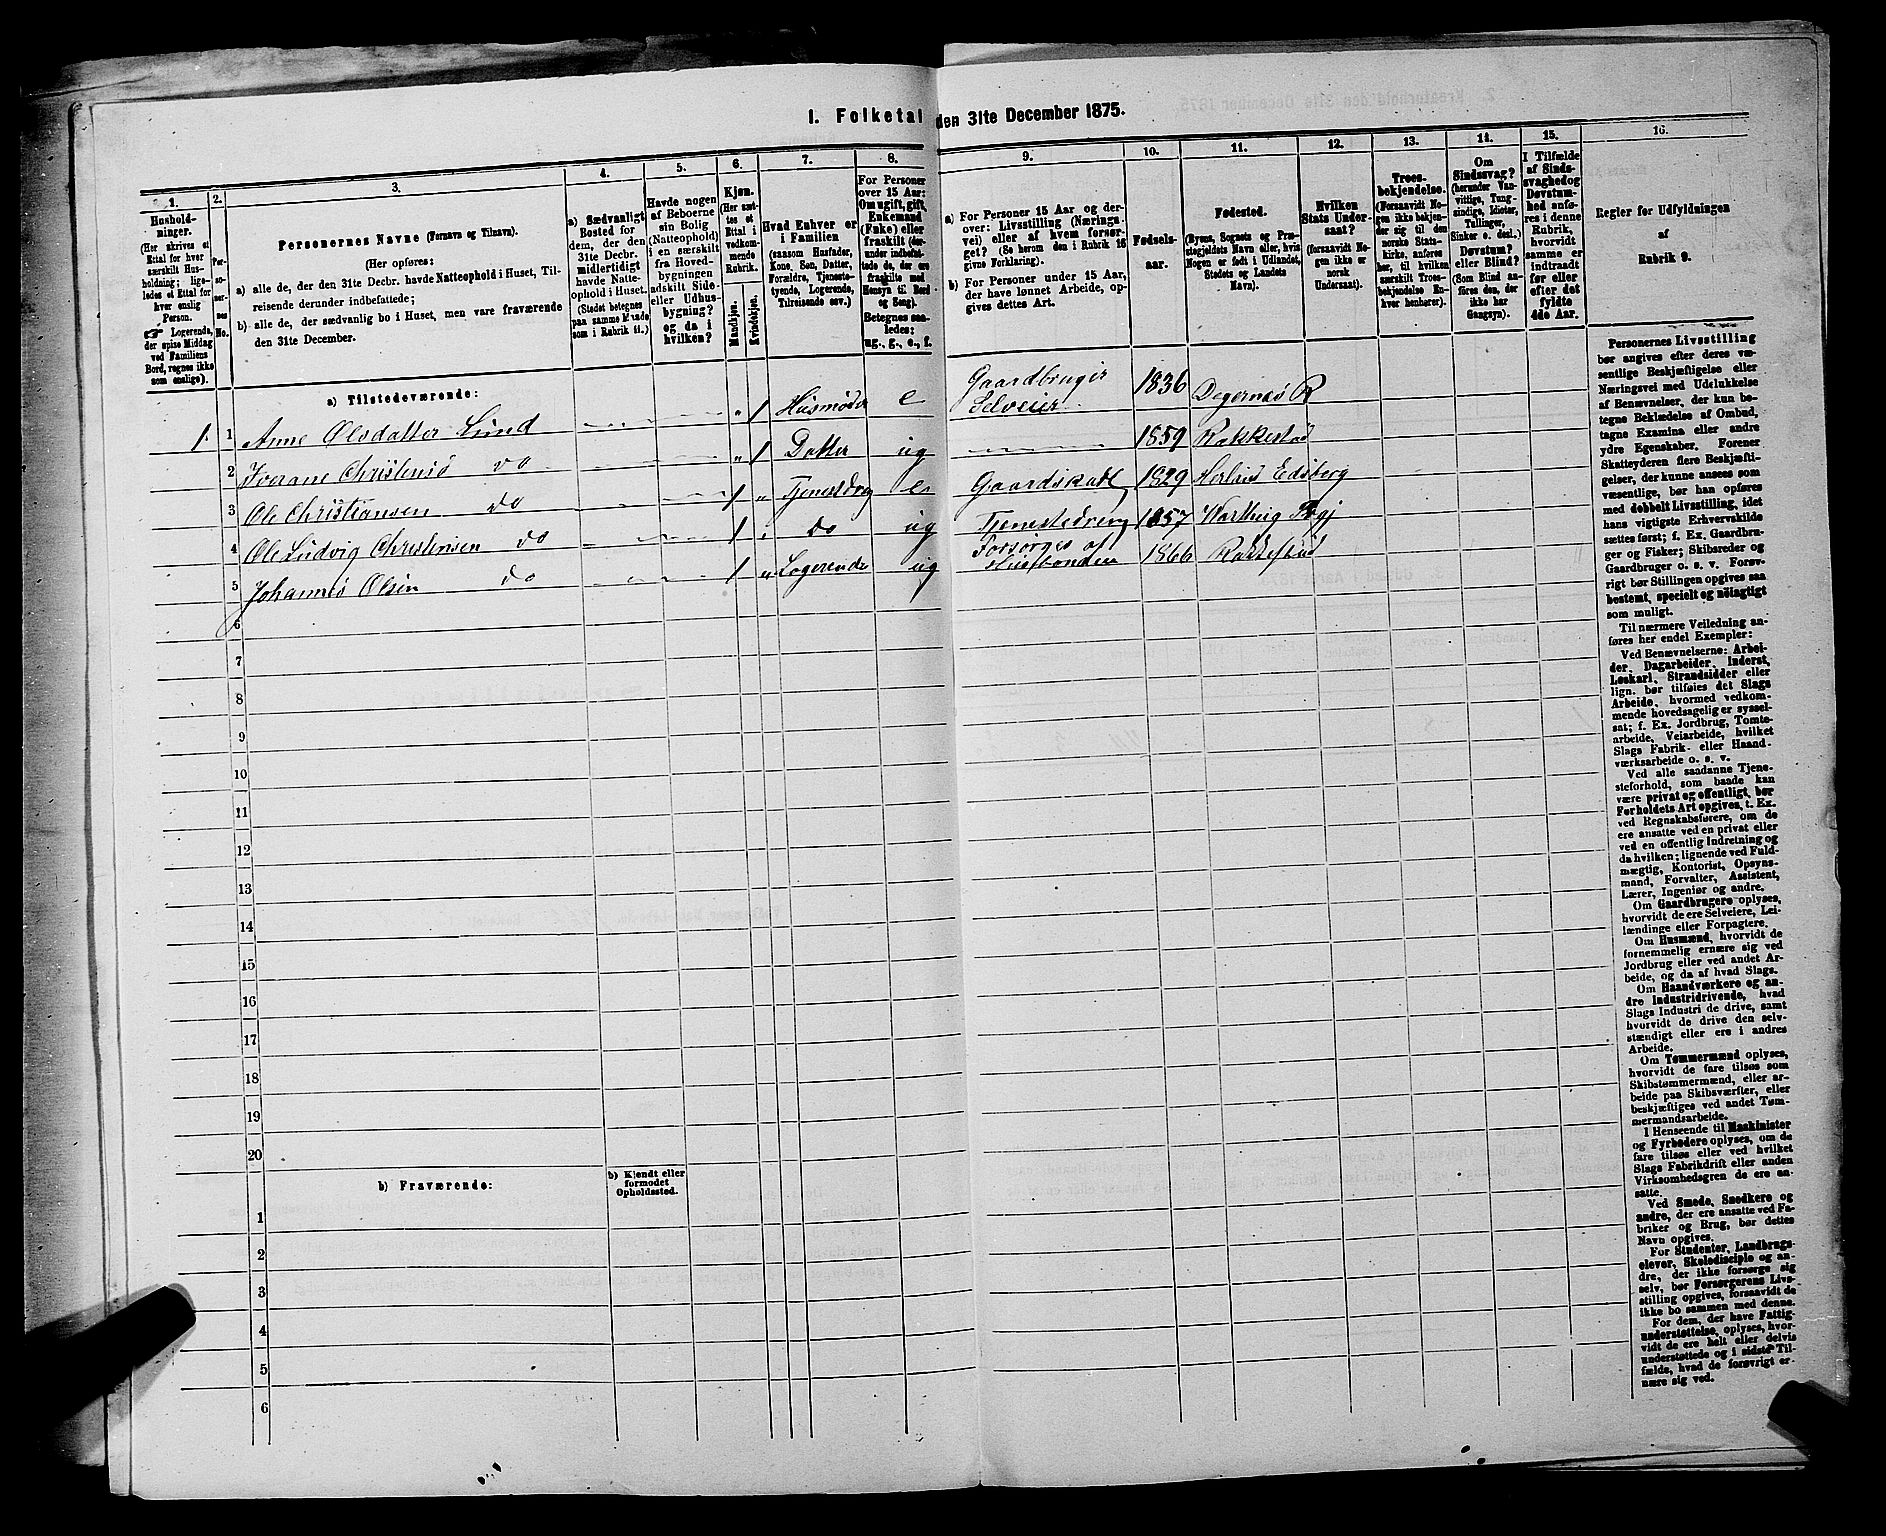 I. Folketal den 31te December 1875.
1.
2.
3.
4.
5.
6.
7.
8.
9.
10.
11.
12.
13.
14.
15.
16.
Husholdninger.
(Her skrives et Ettal for hver særskilt Husholdning; ligeledes et Ettal for hver enslig Person.
☞ Logerende, der spise Middag ved Familiens Bord, regnes ikke som enslige).
Personernes No.
Personernes Navne (Fornavn og Tilnavn).
(Her opføres:
a) alle de, der den 31te Decbr. havde Natteophold i Huset, Tilreisende derunder indbefattede;
b) alle de, der sædvanlig bo i Huset, men vare fraværende den 31te December.
a) Sædvanligt Bosted for dem, der den 31te Decbr. midlertidigt havde Natteophold i Huset. (Stedet betegnes paa samme Maade som i Rubrik 11.)
Havde nogen af Beboerne sin Bolig (Natteophold) i en særskilt fra Hovedbygningen adskilt Side- eller Udhusbygning? og da i hvilken?
Kjøn.
(Her sættes et Ettal i vedkommende Rubrik.
Mandkjøn.
Kvindekjøn.
Hvad Enhver er i Familien
(saasom Husfader, Kone, Søn, Datter, Forældre, Tjenestetyende, Logerende, Tilreisende osv.)
For Personer over 15 Aar: Om ugift, gift, Enkemand (Enke) eller fraskilt (derunder indbefattede de, der ere fraskilte med Hensyn til Bord og Seng).
Betegnes saaledes: ug., g., e., f.
a) For Personer 15 Aar og derover: Livsstilling (Næringsvei) eller af hvem forsørget? (Se herom den i Rubrik 16 givne Forklaring).
b) For Personer under 15 Aar, der have lønnet Arbeide, opgives dettes Art.
Fødselsaar.
Fødested.
(Byens, Sognets og Præstegjeldets Navn eller, hvis Nogen er født i Udlandet, Stedets og Landets Navn).
Hvilken Stats Undersaat?
(forsaavidt Nogen ikke er norsk Undersaat).
Troesbekjendelse.
(Forsaavidt Nogen ikke bekjender sig til den norske Statskirke, anføres her, til hvilken særskilt Troesbekjendelse Enhver henhører).
Om Sindssvag?
(herunder Vanvittige, Tungsindige, Idioter, Tullinger, Sinker o. desl.)
Døvstum? eller Blind?
(Som Blind anføres den, der ikke har Gangsyn).
I Tilfælde af Sindssvaghed og Døvstumhed anføres i denne Rubrik, hvorvidt samme er indtraadt før eller efter det fyldte 4de Aar.
Regler for Udfyldningen af Rubrik 9.
a) Tilstedeværende:
1. 1 Anne Olsdatter Lund " 1 Husmoder e Gaardbruger Selveier 1836 Degernæs R
2 Iverane Christensd do " 1 Datter ug 1859 Rakkestad
3 Ole Christiansen do 1 " Tjenestdreng e 1829 Edsberg
4 Ole Ludvig Christensen do 1 " do ug Tjenestedreng 1857
5 Johannes Olsen do 1 " Logerende ug Forsørges af Husbonden 1866 Rakkestad
6
7
8
9
10
11
12
13
14
15
16
17
18
19
20
b) Fraværende:
b) Kjendt eller formodet Opholdssted.
1
2
3
4
5
6
Personernes Livsstilling
bør angives efter deres væ-
sentlige Beskjæftigelse eller
Næringsvei med Udelukkelse
af Benævnelser, der kun be-
tegne Beklædelse af Ombud,
tagne Examina eller andre
ydre Egenskaber. Forener
Skatteyderen flere Beskjæfti-
gelser, der kunne ansees som
væsentlige, bør han opføres
med dobbelt Livsstilling, idet
hans vigtigste Erhvervskilde
sættes først; f. Ex. Gaardbru-
ger og Fisker; Skibsreder og
Gaardbruger o. s. v. Forøv-
rigt bør Stillingen opgives saa
bestemt, specielt og nøiagtigt
som muligt.
Til nærmere Veiledning an-
føres her endel Exempler:
Ved Benævnelserne: Arbei-
der, Dagarbeider, Inderst,
Løskarl, Strandsidder eller
lign. bør tilføies det Slags
Arbeide, hvormed vedkom-
mende hovedsagelig er syssel-
sat; f. Ex. Jordbrug, Tomte-
arbeide, Veiarbeide, hvilket
Slags Fabrik- eller Haand-
værksarbeide o. s. v.
Ved alle saadanne Tjene-
steforhold, som baade kan
være privat og offentligt, bør
Forholdets Art opgives, t. Ex.
ved Regnskabsførere, om de
ere ansatte ved en privat eller
ved en offentlig Indretning og
da hvilken; lignende ved Fuld-
mægtig, Kontorist, Opsyns-
mand, Forvalter, Assistent,
Lærer, Ingeniør og andre.
Om Gaardbrugere oplyses,
hvorvidt de ere Selveiere, Lei-
lændinge eller Forpagtere.
Om Husmænd, hvorvidt de
fornemmelig ernære sig ved
Jordbrug eller ved andet Ar-
beide, og da af hvad Slags.
Om Haandværkere og an-
dre Industridrivende, hvad
Slags Industri de drive, samt
hvorvidt de drive den selv-
stændigt eller ere i andres
Arbeide.
Om Tømmermænd oplyses,
hvorvidt de fare tilsøs som
Skibstømmermænd, eller ar-
beide paa Skibsværfter, eller
beskjæftiges ved andet Tøm-
mermandsarbeide.
I Henseende til Maskinister
og Fyrbødere oplyses, om de
fare tilsøs eller ved hvilket
Slags Fabrikdrift eller anden
Virksomhedsgren de ere an-
satte.
Ved Smede, Snedkere og
andre, der ere ansatte ved Fa-
briker og Brug, bør dettes
Navn opgives.
For Studenter, Landbrugs-
elever, Skoledisciple og an-
dre, der ikke forsørge sig
selv, bør Forsørgerens Livs-
stilling opgives, forsaavidt de
ikke bo sammen med denne.
For dem, der have Fattig-
understøttelse, oplyses, hvor-
vidt de ere helt eller delvis
understøttede og i sidste Til-
fælde, hvad de forøvrigt er-
nære sig ved.